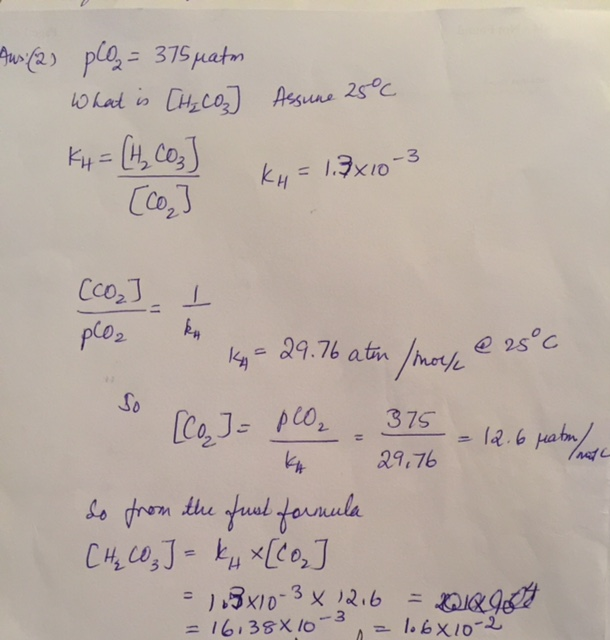 Ans:(2) pCO₂ = 375 μatm
What is [H₂CO₃] Assume 25°C
K_H = [H₂CO₃] / [CO₂] K_H = 1.3×10⁻³
[CO₂] / pCO₂ = 1 / k_H
K_H = 29.76 atm /mol/L @ 25°C
So
[CO₂] = pCO₂ / K_H = 375 / 29.76 = 12.6 μatm/mol/L
So from the first formula
[H₂CO₃] = K_H ×[CO₂]
= 1.3×10⁻³ × 12.6 =
= 16.38×10⁻³ = 1.6×10⁻²